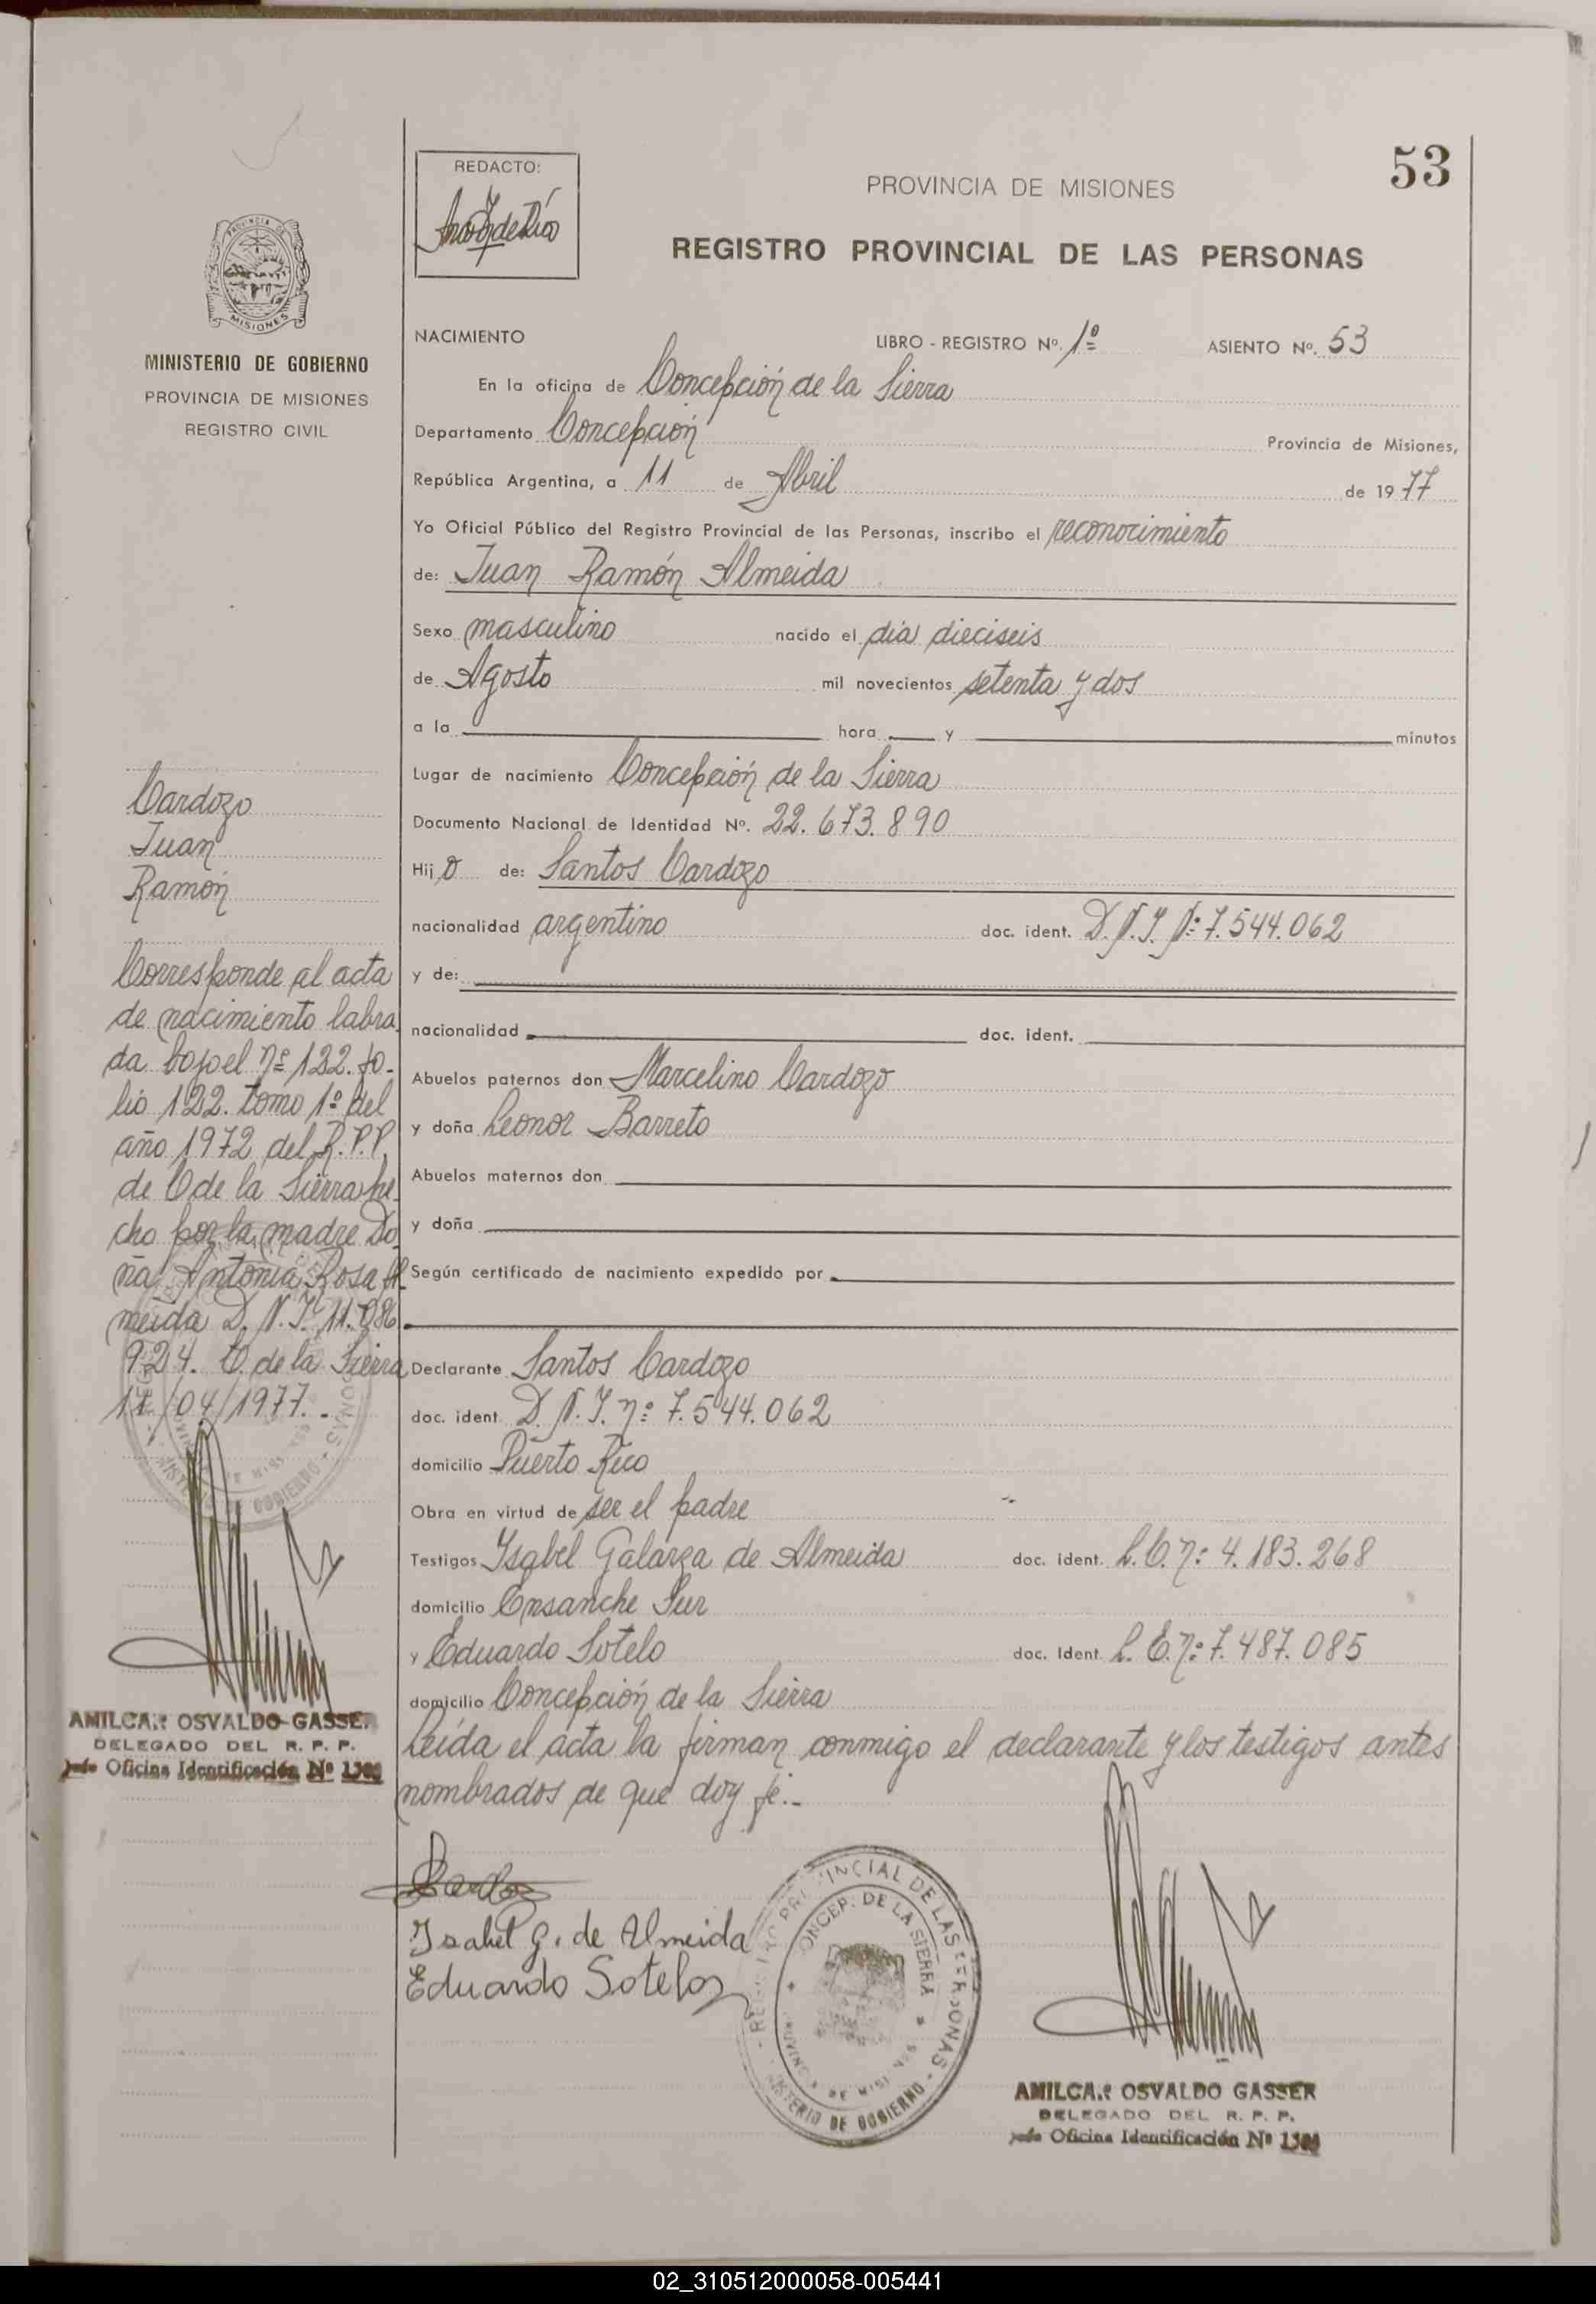 53
REDACTO:
PROVINCIA DE MISIONES
REGISTRO PROVINCIAL DE LAS PERSONAS
PROVINCIA DE
MISIONES
MINISTERIO DE GOBIERNO
PROVINCIA DE MISIONES
REGISTRO CIVIL
NACIMIENTO LIBRO - REGISTRO Nº. 1º ASIENTO Nº. 53
En la oficina de Concepción de la Sierra
Departamento Concepción Provincia de Misiones,
República Argentina, a 11 de Abril de 1977
Yo Oficial Público del Registro Provincial de las Personas, inscribo el reconocimiento
de: Juan Ramón Almeida
Sexo masculino nacido el día dieciseis
de Agosto mil novecientos setenta y dos
a la hora y minutos
Lugar de nacimiento Concepción de la Sierra
Documento Nacional de Identidad Nº. 22.673.890
Hijo de: Santos Cardozo
nacionalidad argentino doc. ident. D.N.I. Nº 7.544.062
y de:
nacionalidad doc. ident.
Abuelos paternos don Marcelino Cardozo
y doña Leonor Barreto
Abuelos maternos don
y doña
Según certificado de nacimiento expedido por
Declarante Santos Cardozo
doc. ident. D.N.I. nº 7.544.062
domicilio Puerto Rico
Obra en virtud de ser el padre
Testigos Ysabel Galarza de Almeida doc. ident. L.C. nº 4.183.268
domicilio Ensanche Sur
y Eduardo Sotelo doc. Ident. L.E. nº 7.487.085
domicilio Concepción de la Sierra
Leída el acta la firman conmigo el declarante y los testigos antes
nombrados de que doy fé.-
Cardozo
Juan
Ramón
Corresponde al acta
de nacimiento labra
da bajo el nº 122. fo-
lio 122. tomo 1º del
año 1972 del R.P.P.
de C de la Sierra he
cho por la madre Do
ña Antonia Rosa Al
meida D.N.I. 11.086.
924. C. de la Sierra
11/04/1977.-
AMILCAR OSVALDO GASSER
DELEGADO DEL R. P. P.
Jefe Oficina Identificación Nº
Cardozo
Isabel G. de Almeida
Eduardo Sotelo
REGISTRO PROVINCIAL DE LAS PERSONAS
CONCEP. DE LA SIERRA
PROVINCIA DE MISIONES
MINISTERIO DE GOBIERNO
AMILCAR OSVALDO GASSER
DELEGADO DEL R. P. P.
Jefe Oficina Identificación Nº
02_310512000058-005441